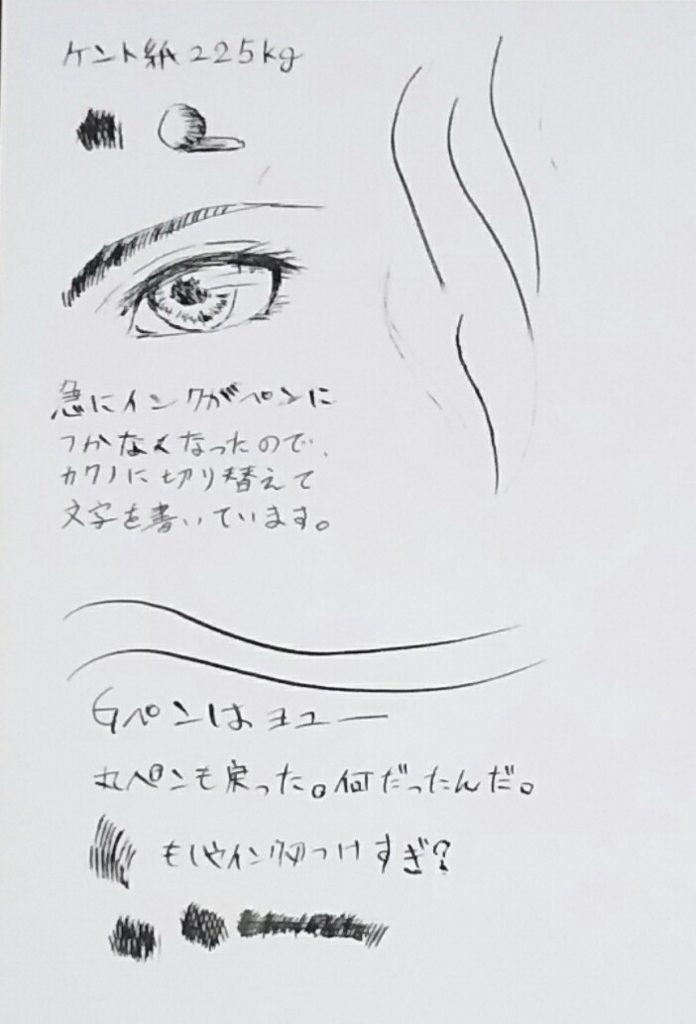 ケント紙225kg
急にインクがペンに
つかなくなったので、
カクノに切り替えて
文字を書いています。
Gペンはヨユー
丸ペンも戻った。何だったんだ。
もしやインクつけすぎ?